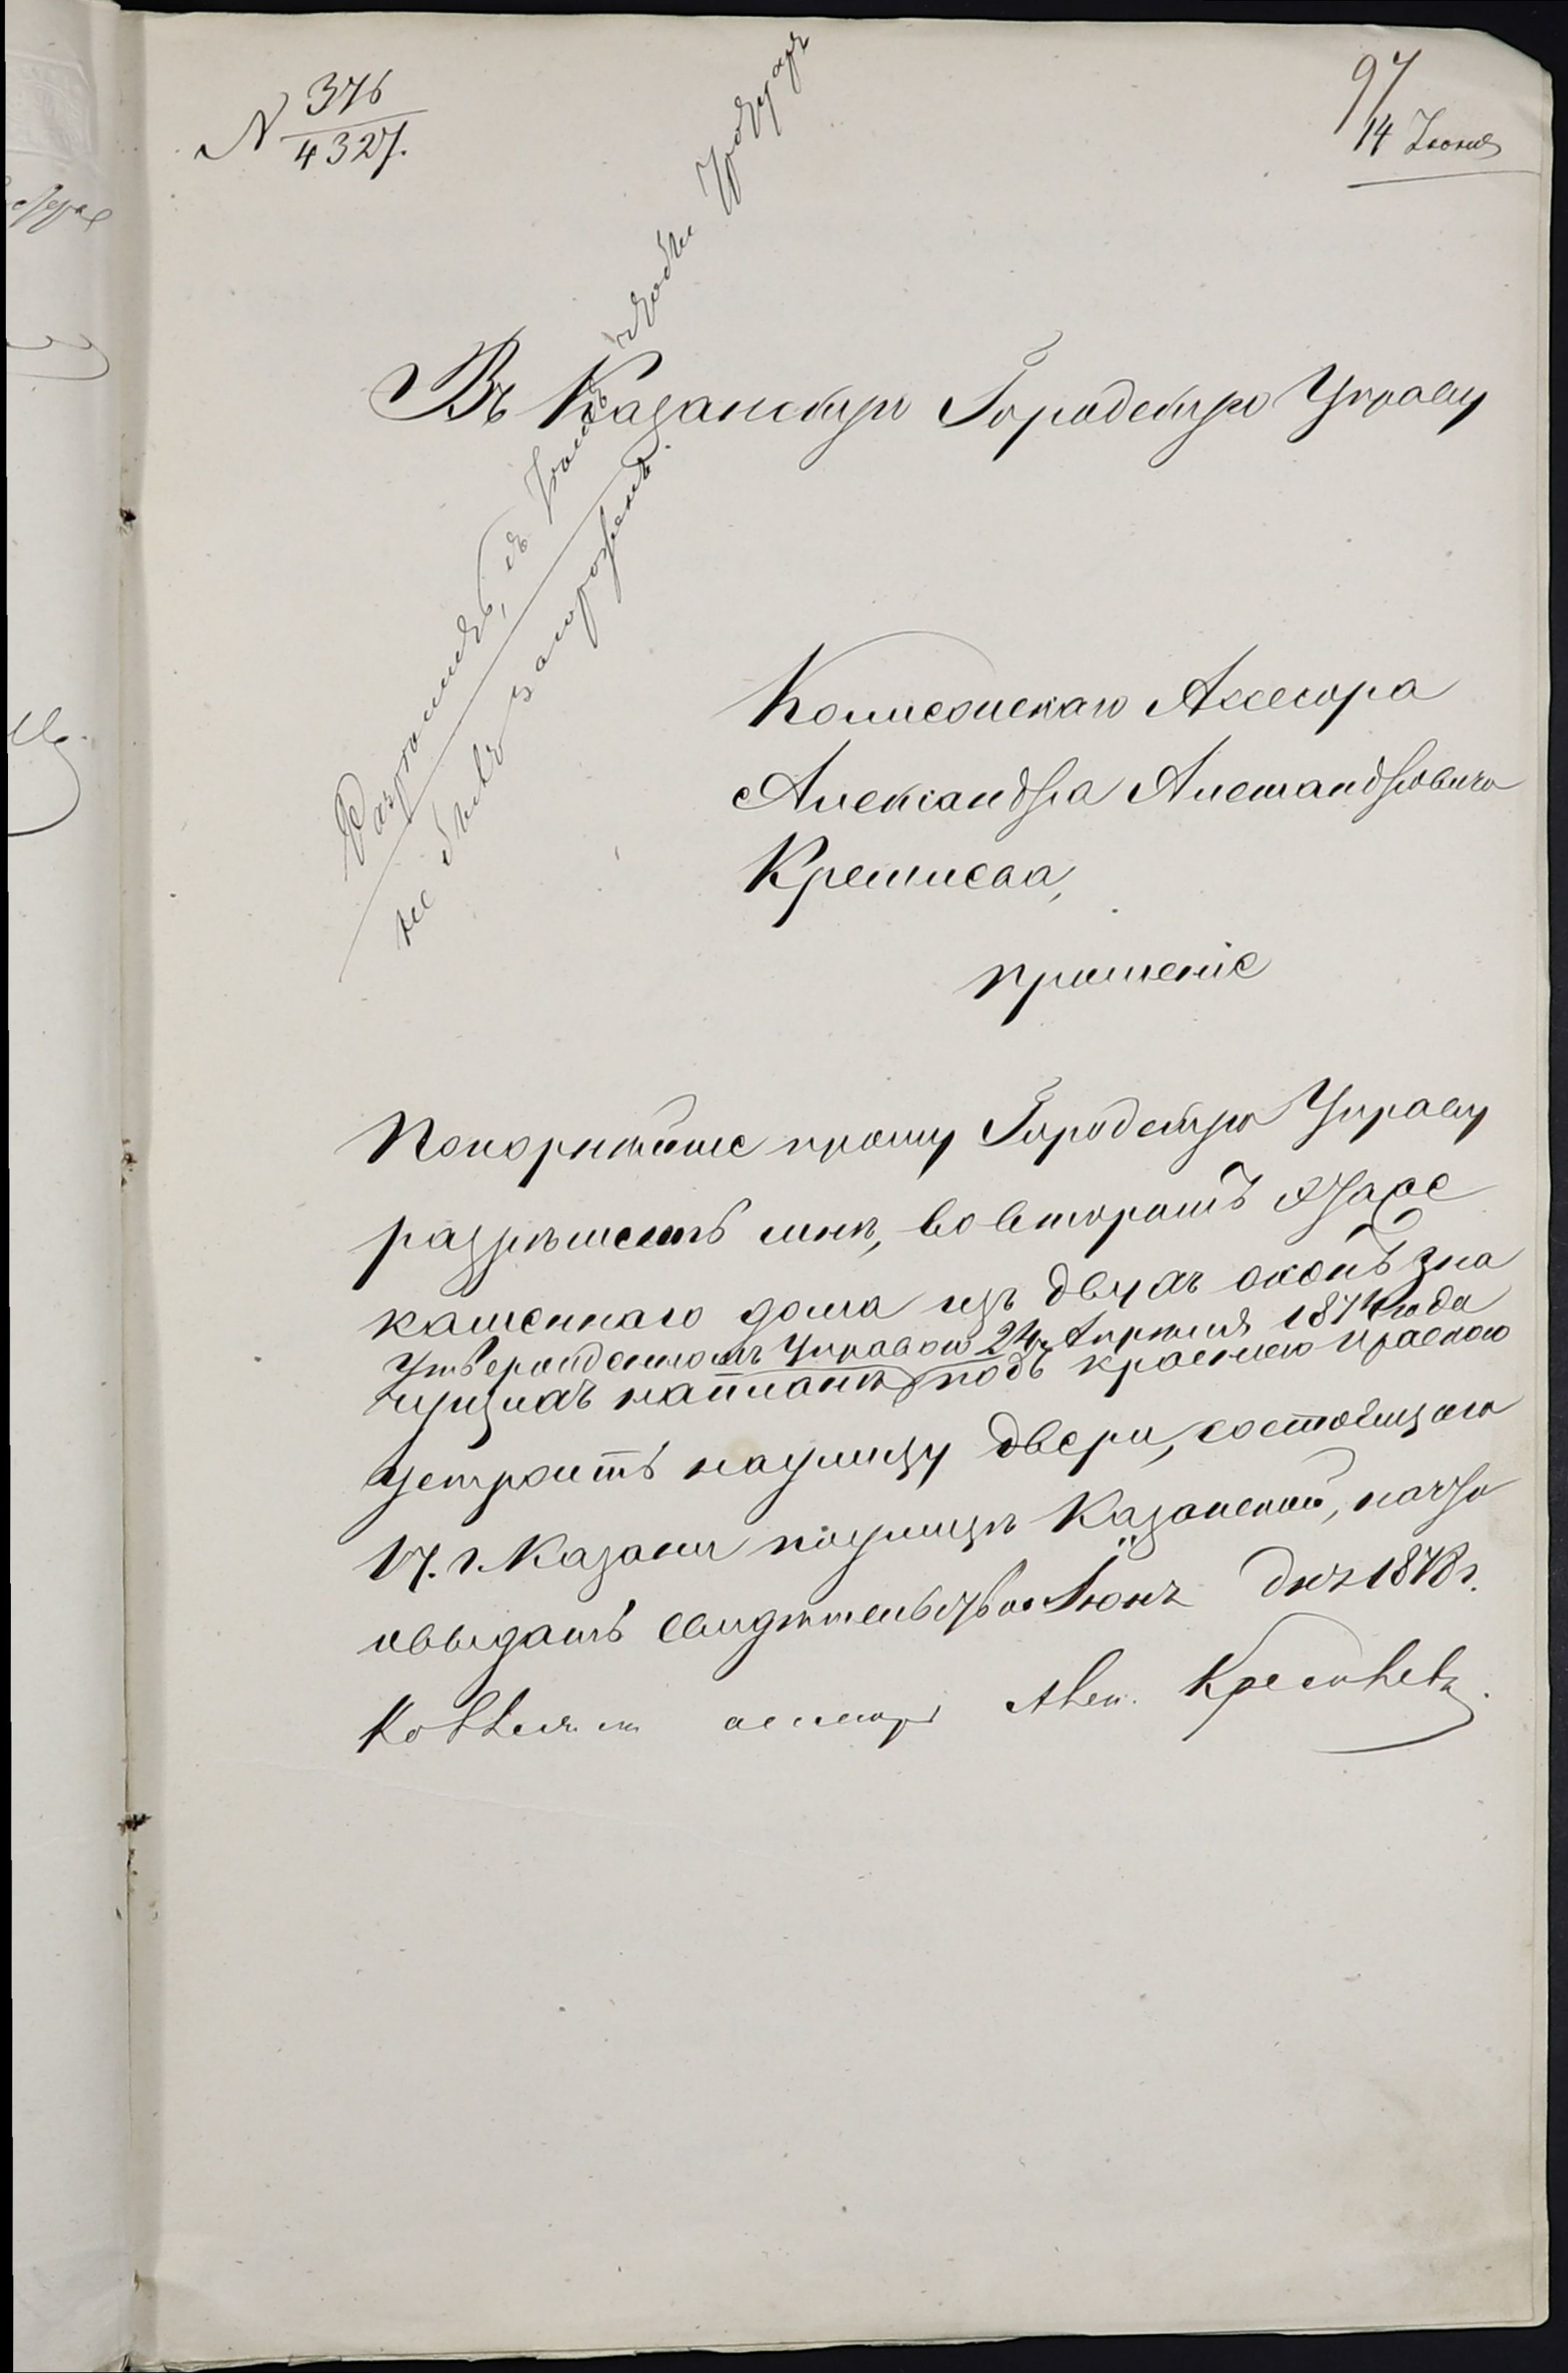 N 376
4327.
97
14 Іюня
Разрѣшить, съ тѣмъ чтобы тротуаръ
не былъ загороженъ.
Въ Казанскую Городскую Управу
Коллежскаго Ассесора
Александра Александровича
прошеніе
Покорнѣйше прошу Городскую Управу
разрѣшить мнѣ, во второмъ этаже
каменнаго дома изъ двухъ оконъ зна
утвержденномъ Управою 24 Апрѣля 1874 года
чущихъ на планѣ подъ краснею краскою
устроить на улицу двери, состоящаго
въ г. Казани по улицѣ Казанской, на что
и выдать свидѣтельство Іюнь дня 1878 г.
ассесоръ Алек.